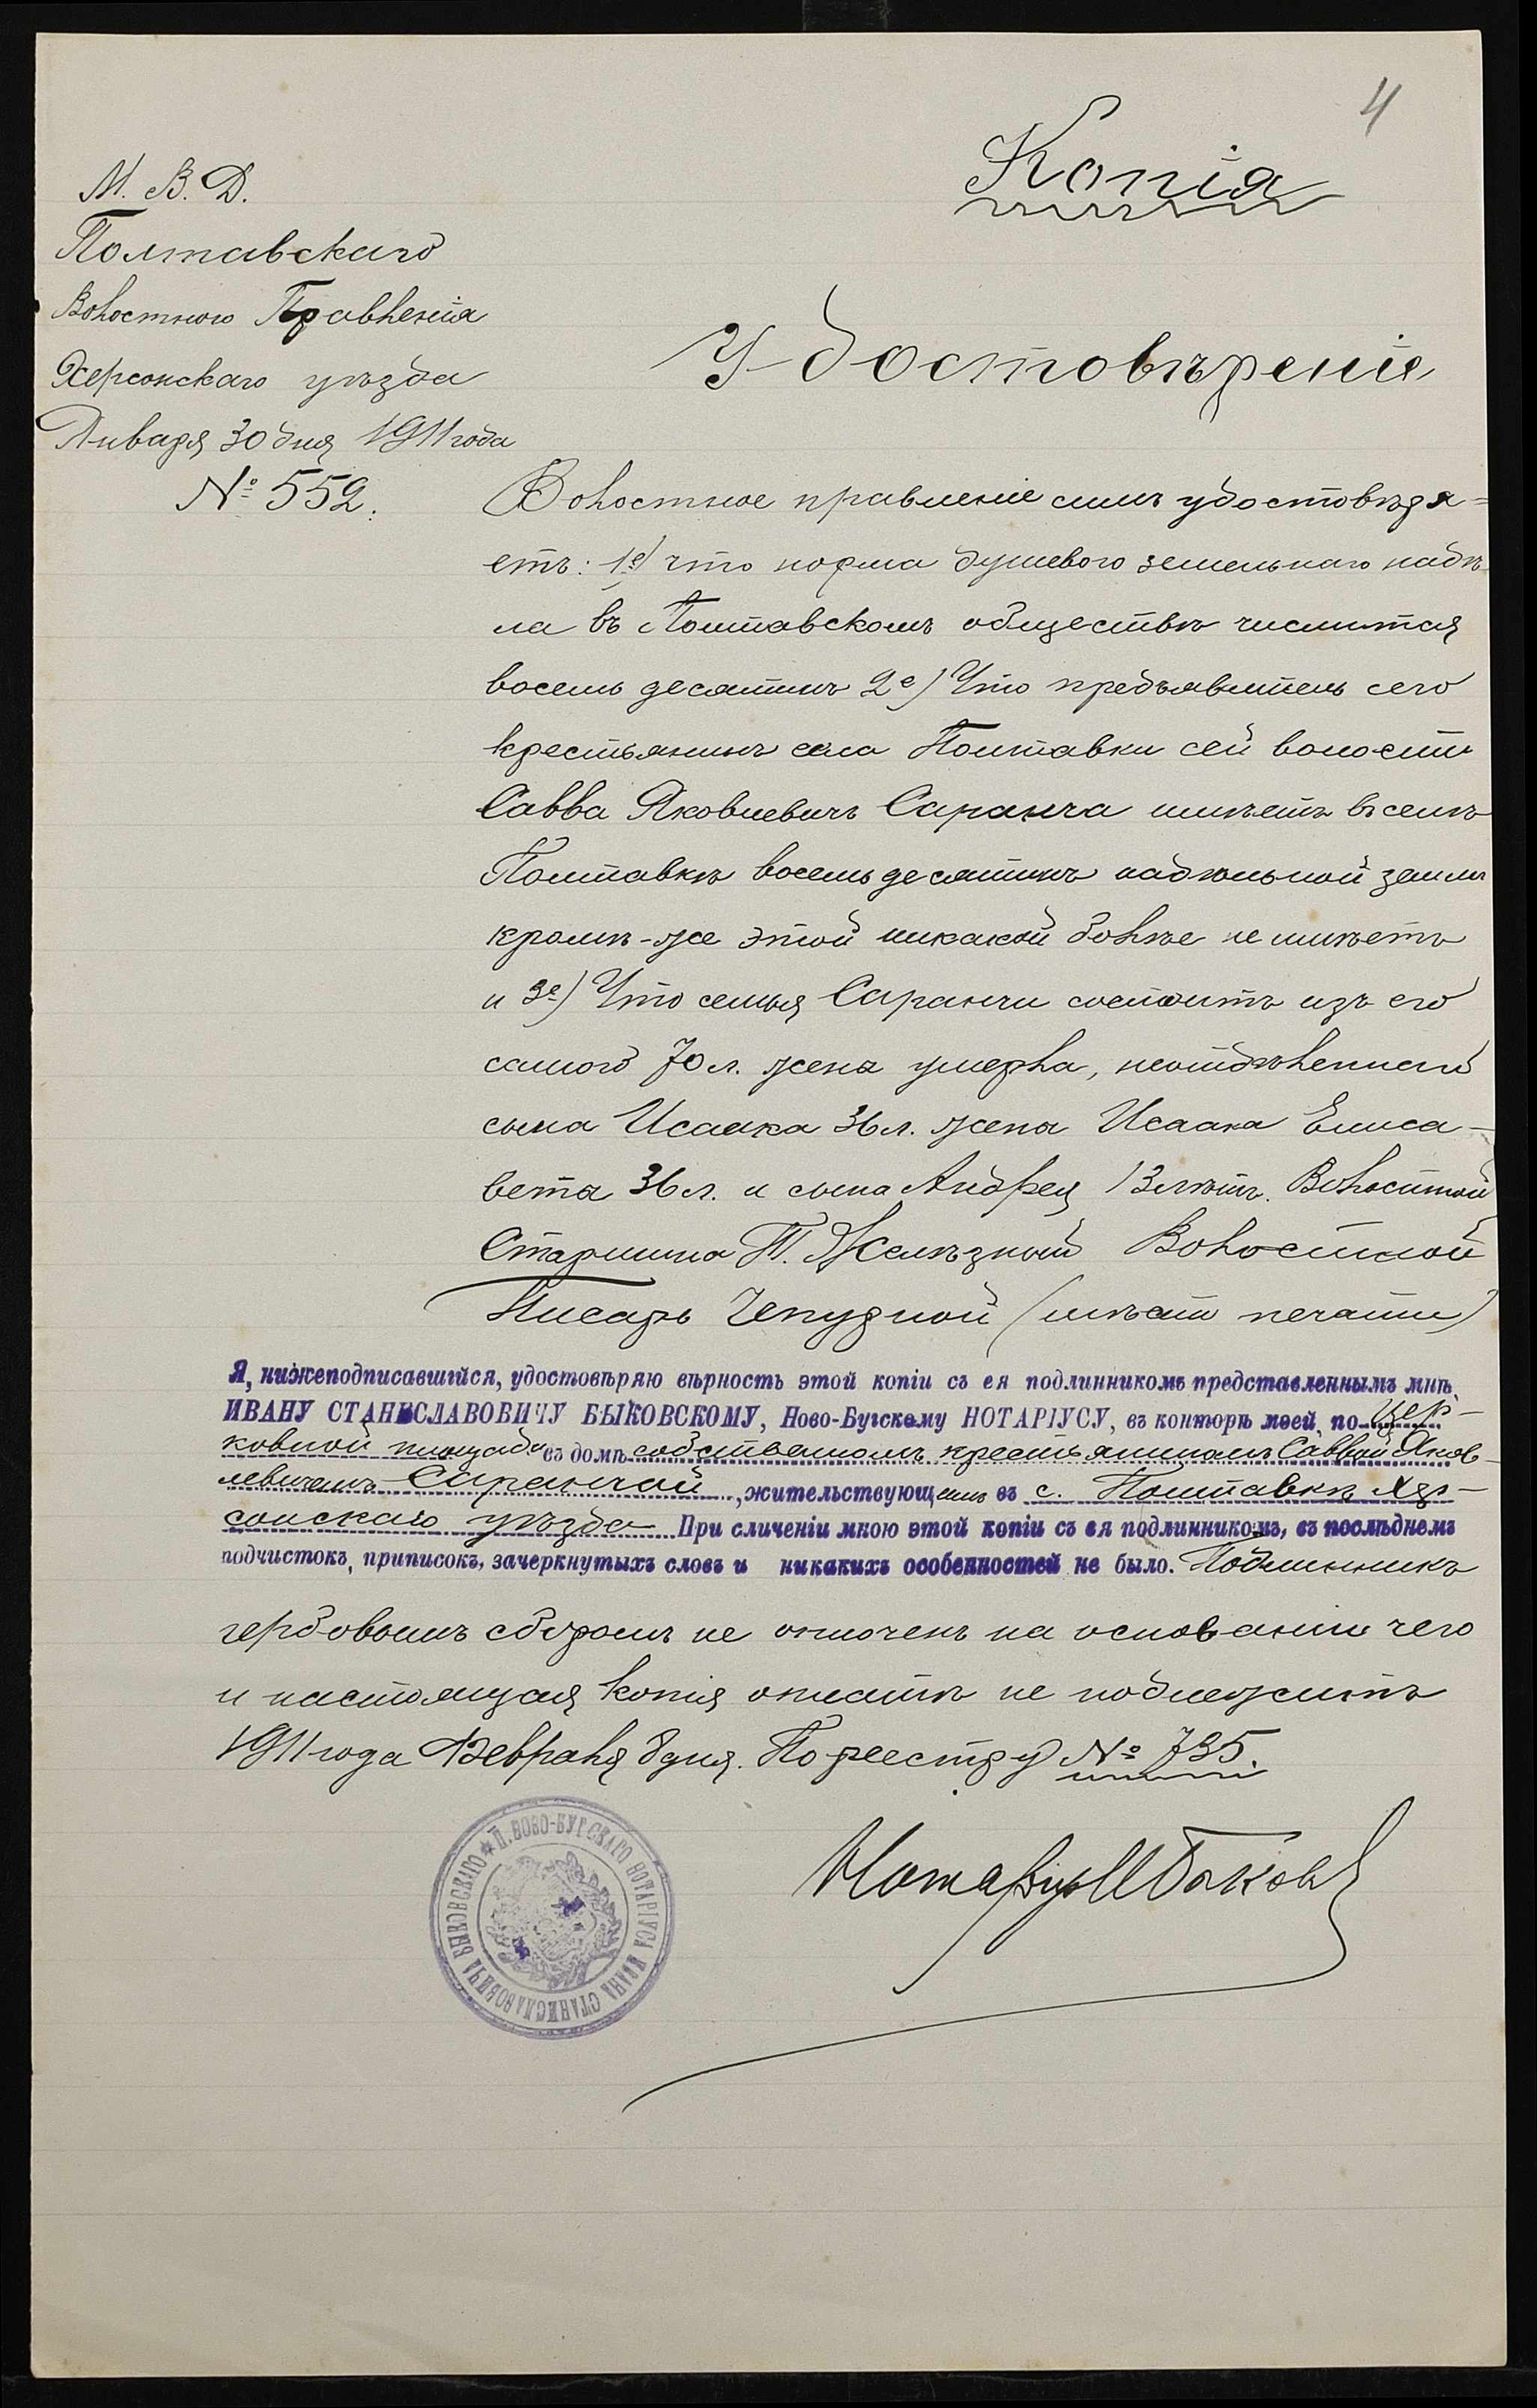 4
Копія
М. В. Д.
Полтавскаго
Волостного Правленія
Херсонскаго уѣзда
Января 30 дня 1911 года
№ 552.
Удостовѣреніе
Волостное правленіе симъ удостовѣря=
етъ: 1е) что норма душевого земельнаго надѣ
ла въ Полтавскомъ обществѣ числится
восемь десятинъ 2е) Что предъявитель сего
крестьянинъ села Полтавки сей волости
Савва Яковлевичъ Саранча имѣетъ въ селѣ
Полтавкѣ восемь десятинъ надѣльной земли
кромѣ-же этой никакой болѣе не имѣетъ
и 3е) Что семья Саранчи состоитъ изъ его
самого 70 л. жена умерла, неотдѣленный
сына Исаака 36 л. жена Исаака Елиса-
вета 36 л. и сына Андрея 13 лѣтъ. Волостной
Старшина Т. Желѣзный Волостной
Писарь Чепурной (мѣсто печати)
Я, нижеподписавшійся, удостовѣряю вѣрность этой копіи съ ея подлинникомъ представленнымъ мнѣ,
ИВАНУ СТАНИСЛАВОВИЧУ БЫКОВСКОМУ, Ново-Бугскому НОТАРІУСУ, въ конторѣ моей, по Цер-
ковной площади въ домѣ собственномъ крестьяниномъ Саввой Яков-
левичемъ Саранчой, жительствующимъ въ с. Полтавкѣ Хер-
сонскаго уѣзда При сличеніи мною этой копіи съ ея подлинникомъ, въ послѣднемъ
подчистокъ, приписокъ, зачеркнутыхъ словъ и никакихъ особенностей не было. Подлинникъ
гербовымъ сборомъ не оплоченъ на основаніи чего
и настоящая копія оплатѣ не подлежитъ
1911 года Февраля 8 дня. По реестру № 735.
Нотаріусъ И Быковскій
П. НОВО-БУГСКАГО НОТАРІУСА ИВАНА СТАНИСЛАВОВИЧА БЫКОВСКАГО